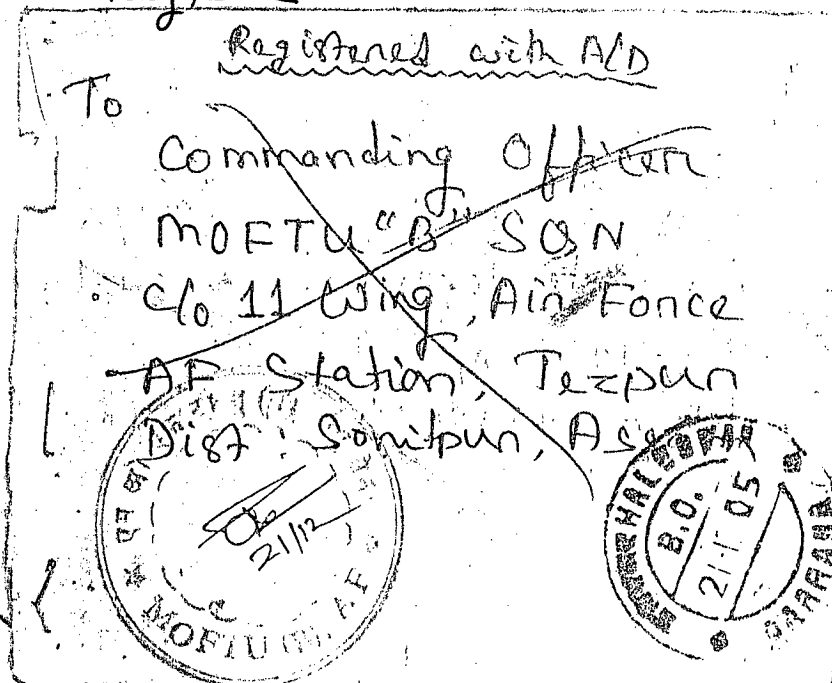 Registered with A/D
To
Commanding Officer
MOFTU "B" SQN
C/o 11 Wing, Air Force
AF Station, Tezpur
Dist: Sonitpur,
21/12
MOFTU
A.F.
B.O.
05